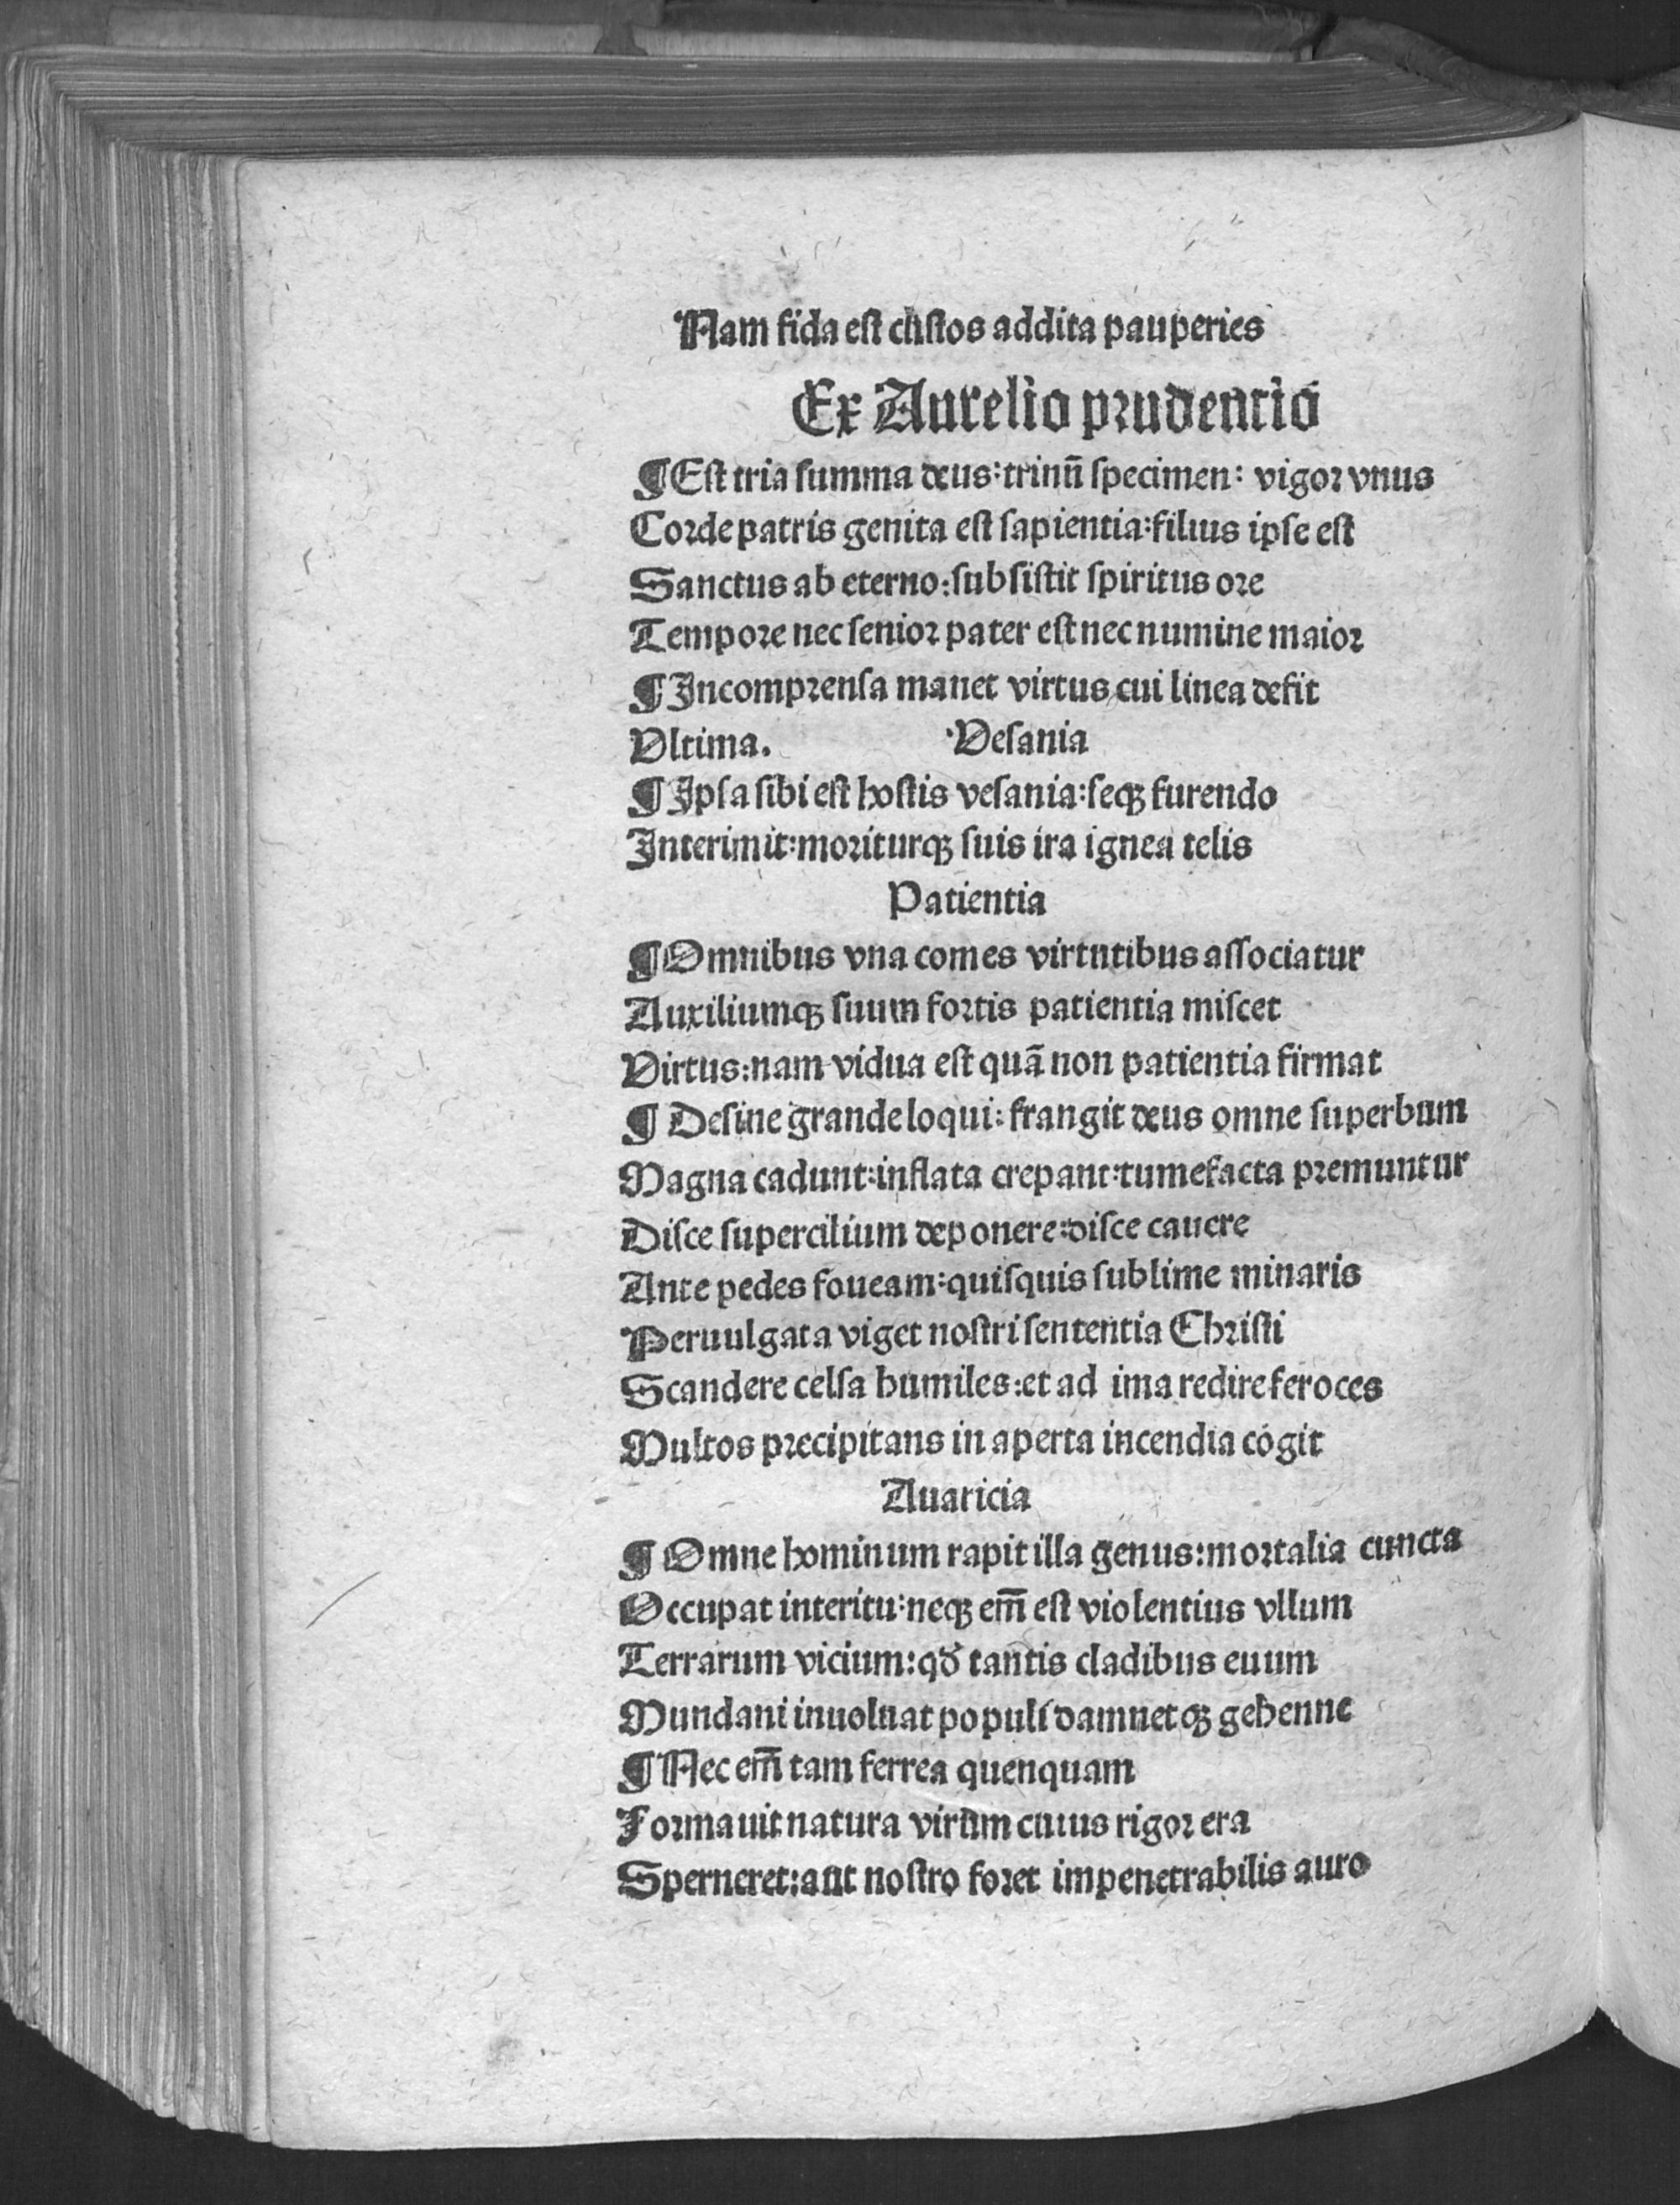 Nam fida est custos addita pauperies
Ex Aurelio prudentio
¶ Est tria summa deus: trinũ specimen: vigor vnus
Corde patris genita est sapientia: filius ipse est
Sanctus ab eterno: subsistit spiritus ore
Tempore nec senior pater est nec numine maior
¶ Incomprensa manet virtus cui linea defit
Vltima. Vesania
¶ Ipsa sibi est hostis vesania: seqꝫ furendo
Interimit: moriturqꝫ suis ira ignea telis
Patientia
¶ Omnibus vna comes virtutibus associatur
Auxiliumqꝫ suum fortis patientia miscet
Virtus: nam vidua est quã non patientia firmat
¶ Desine grande loqui: frangit deus omne superbum
Magna cadunt: inflata crepant: tumefacta premuntur
Disce supercilium deponere: disce cauere
Ante pedes foueam: quisquis sublime minaris
Peruulgata viget nostri sententia Christi
Scandere celsa humiles: et ad ima redire feroces
Multos precipitans in aperta incendia cogit
Auaricia
¶ Omne hominum rapit illa genus: mortalia cuncta
Occupat interitu: neqꝫ em̃ est violentius vllum
Terrarum vicium: qđ tantis cladibus euum
Mundani inuoluat populi damnetqꝫ gehenne
¶ Nec em̃ tam ferrea quenquam
Formauit natura virum cuius rigor era
Sperneret: aut nostro foret impenetrabilis auro